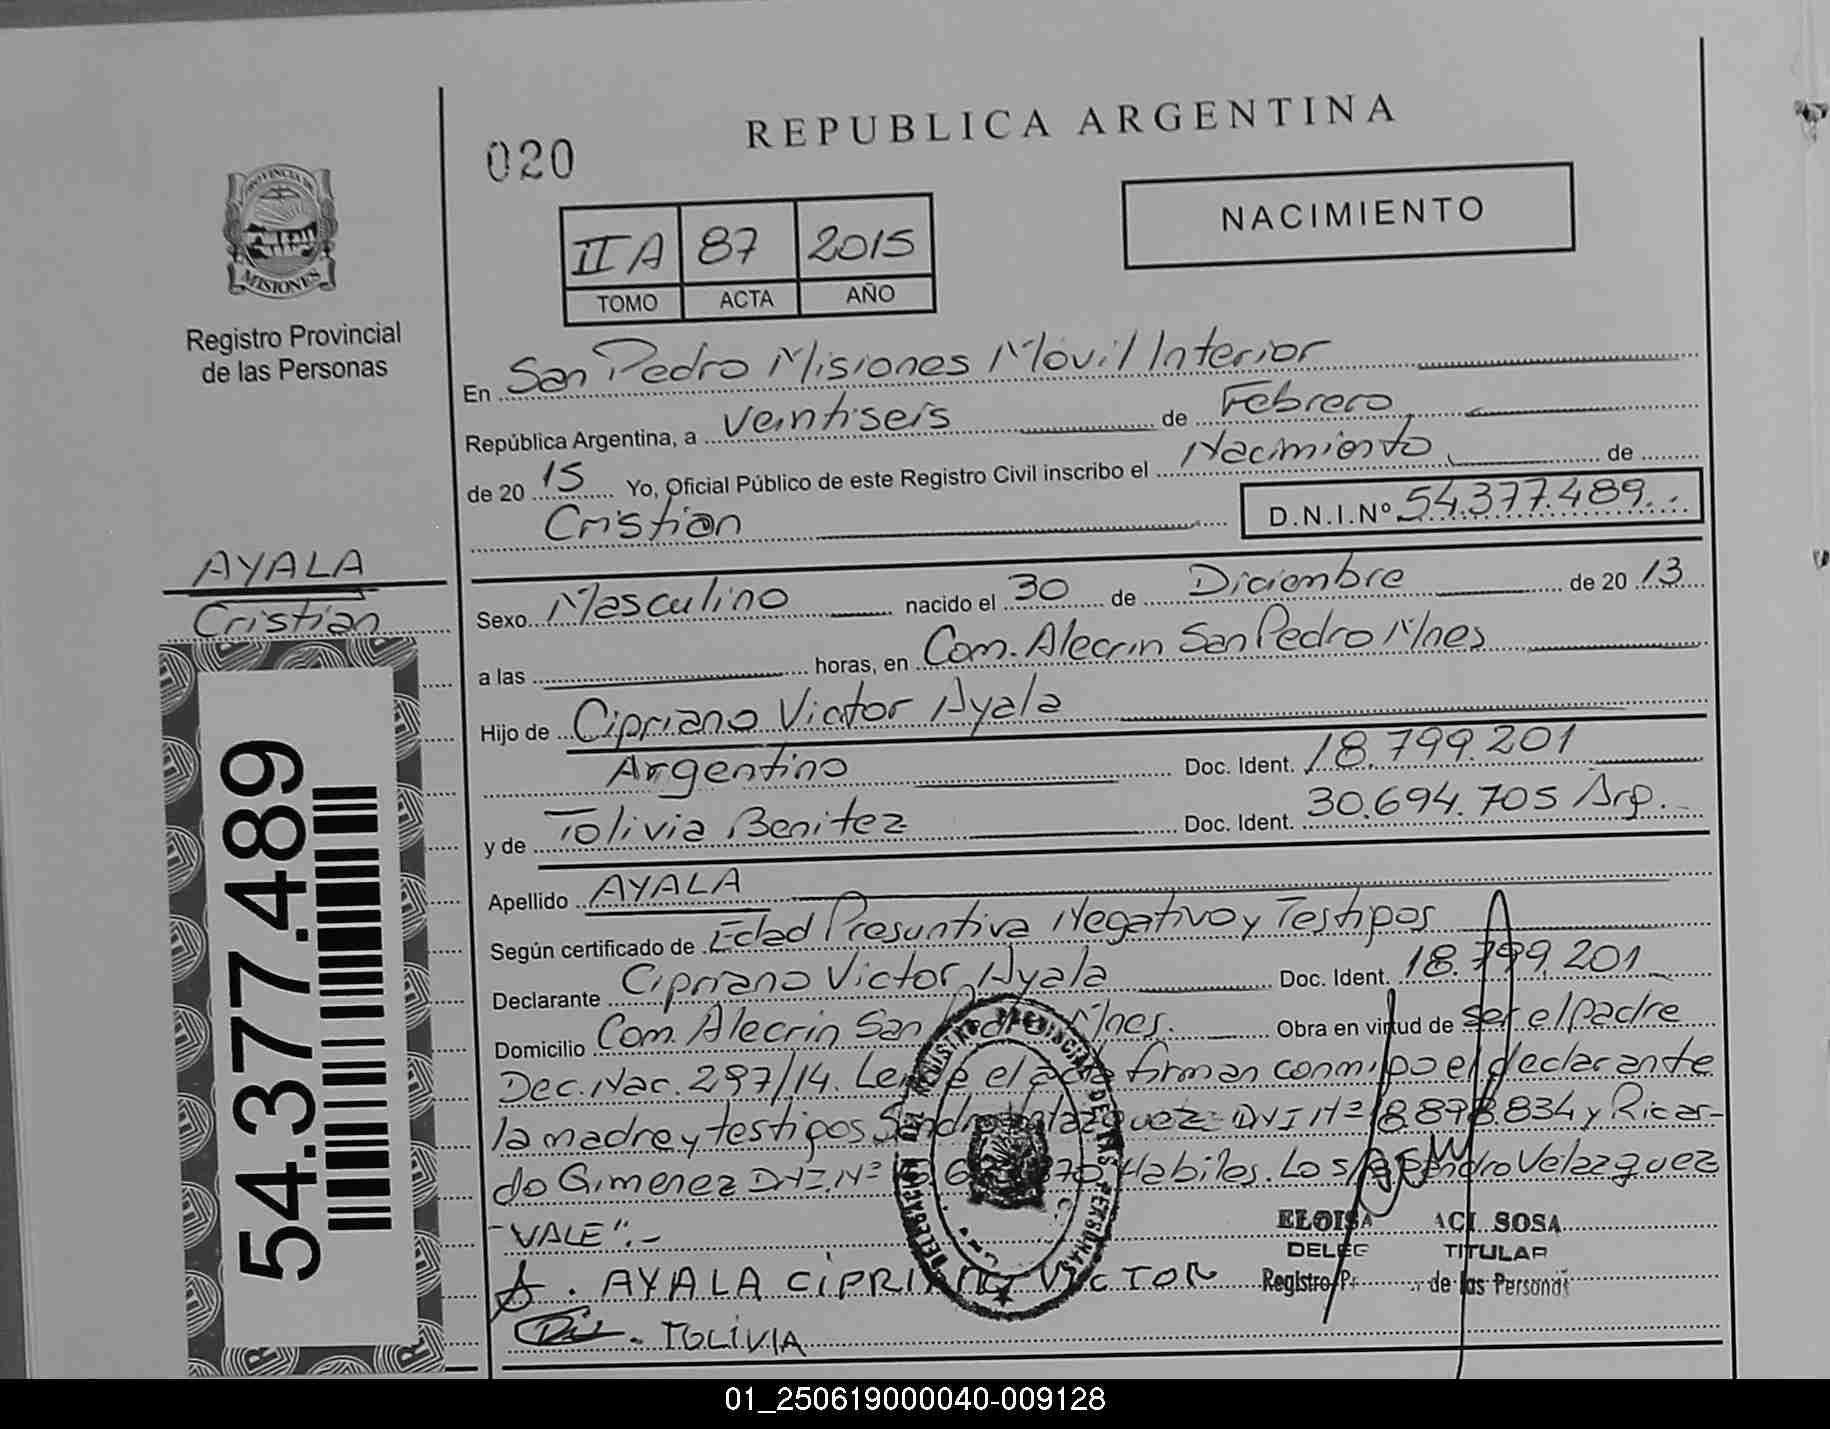 REPUBLICA ARGENTINA
020
NACIMIENTO
PROVINCIA DE
MISIONES
Registro Provincial
de las Personas
II A 87 2015
TOMO ACTA AÑO
En San Pedro Misiones Móvil Interior
República Argentina, a Veintiseis de Febrero
de 20 15 Yo, Oficial Público de este Registro Civil inscribo el Nacimiento de
Cristian D.N.I.Nº 54.377.489
AYALA
Cristian
54.377.489
Sexo Masculino nacido el 30 de Diciembre de 20 13
a las horas, en Com. Alecrin San Pedro Mnes
Hijo de Cipriano Victor Ayala
Argentino Doc. Ident. 18.799.201
y de Tolivia Benitez Doc. Ident. 30.694.705 Arg.
Apellido AYALA
Según certificado de Edad Presuntiva Negativo y Testigos
Declarante Cipriano Victor Ayala Doc. Ident. 18.799.201
Domicilio Com. Alecrin San Pedro Mnes. Obra en virtud de ser el padre
Dec. Nac. 297/14. el acta firman conmigo el declarante
la madre y testigos Velazquez DNI Nº 18.898.834 y Ricar-
do Gimenez DNI.Nº Habiles. Los/ Velazquez
"VALE".-
AYALA CIPRIANO VICTOR
TOLIVIA
DELEGACION DEL REGISTRO PROVINCIAL DE LAS PERSONAS
ELOISA SOSA
TITULAR
Registro de las Personas
01_250619000040-009128